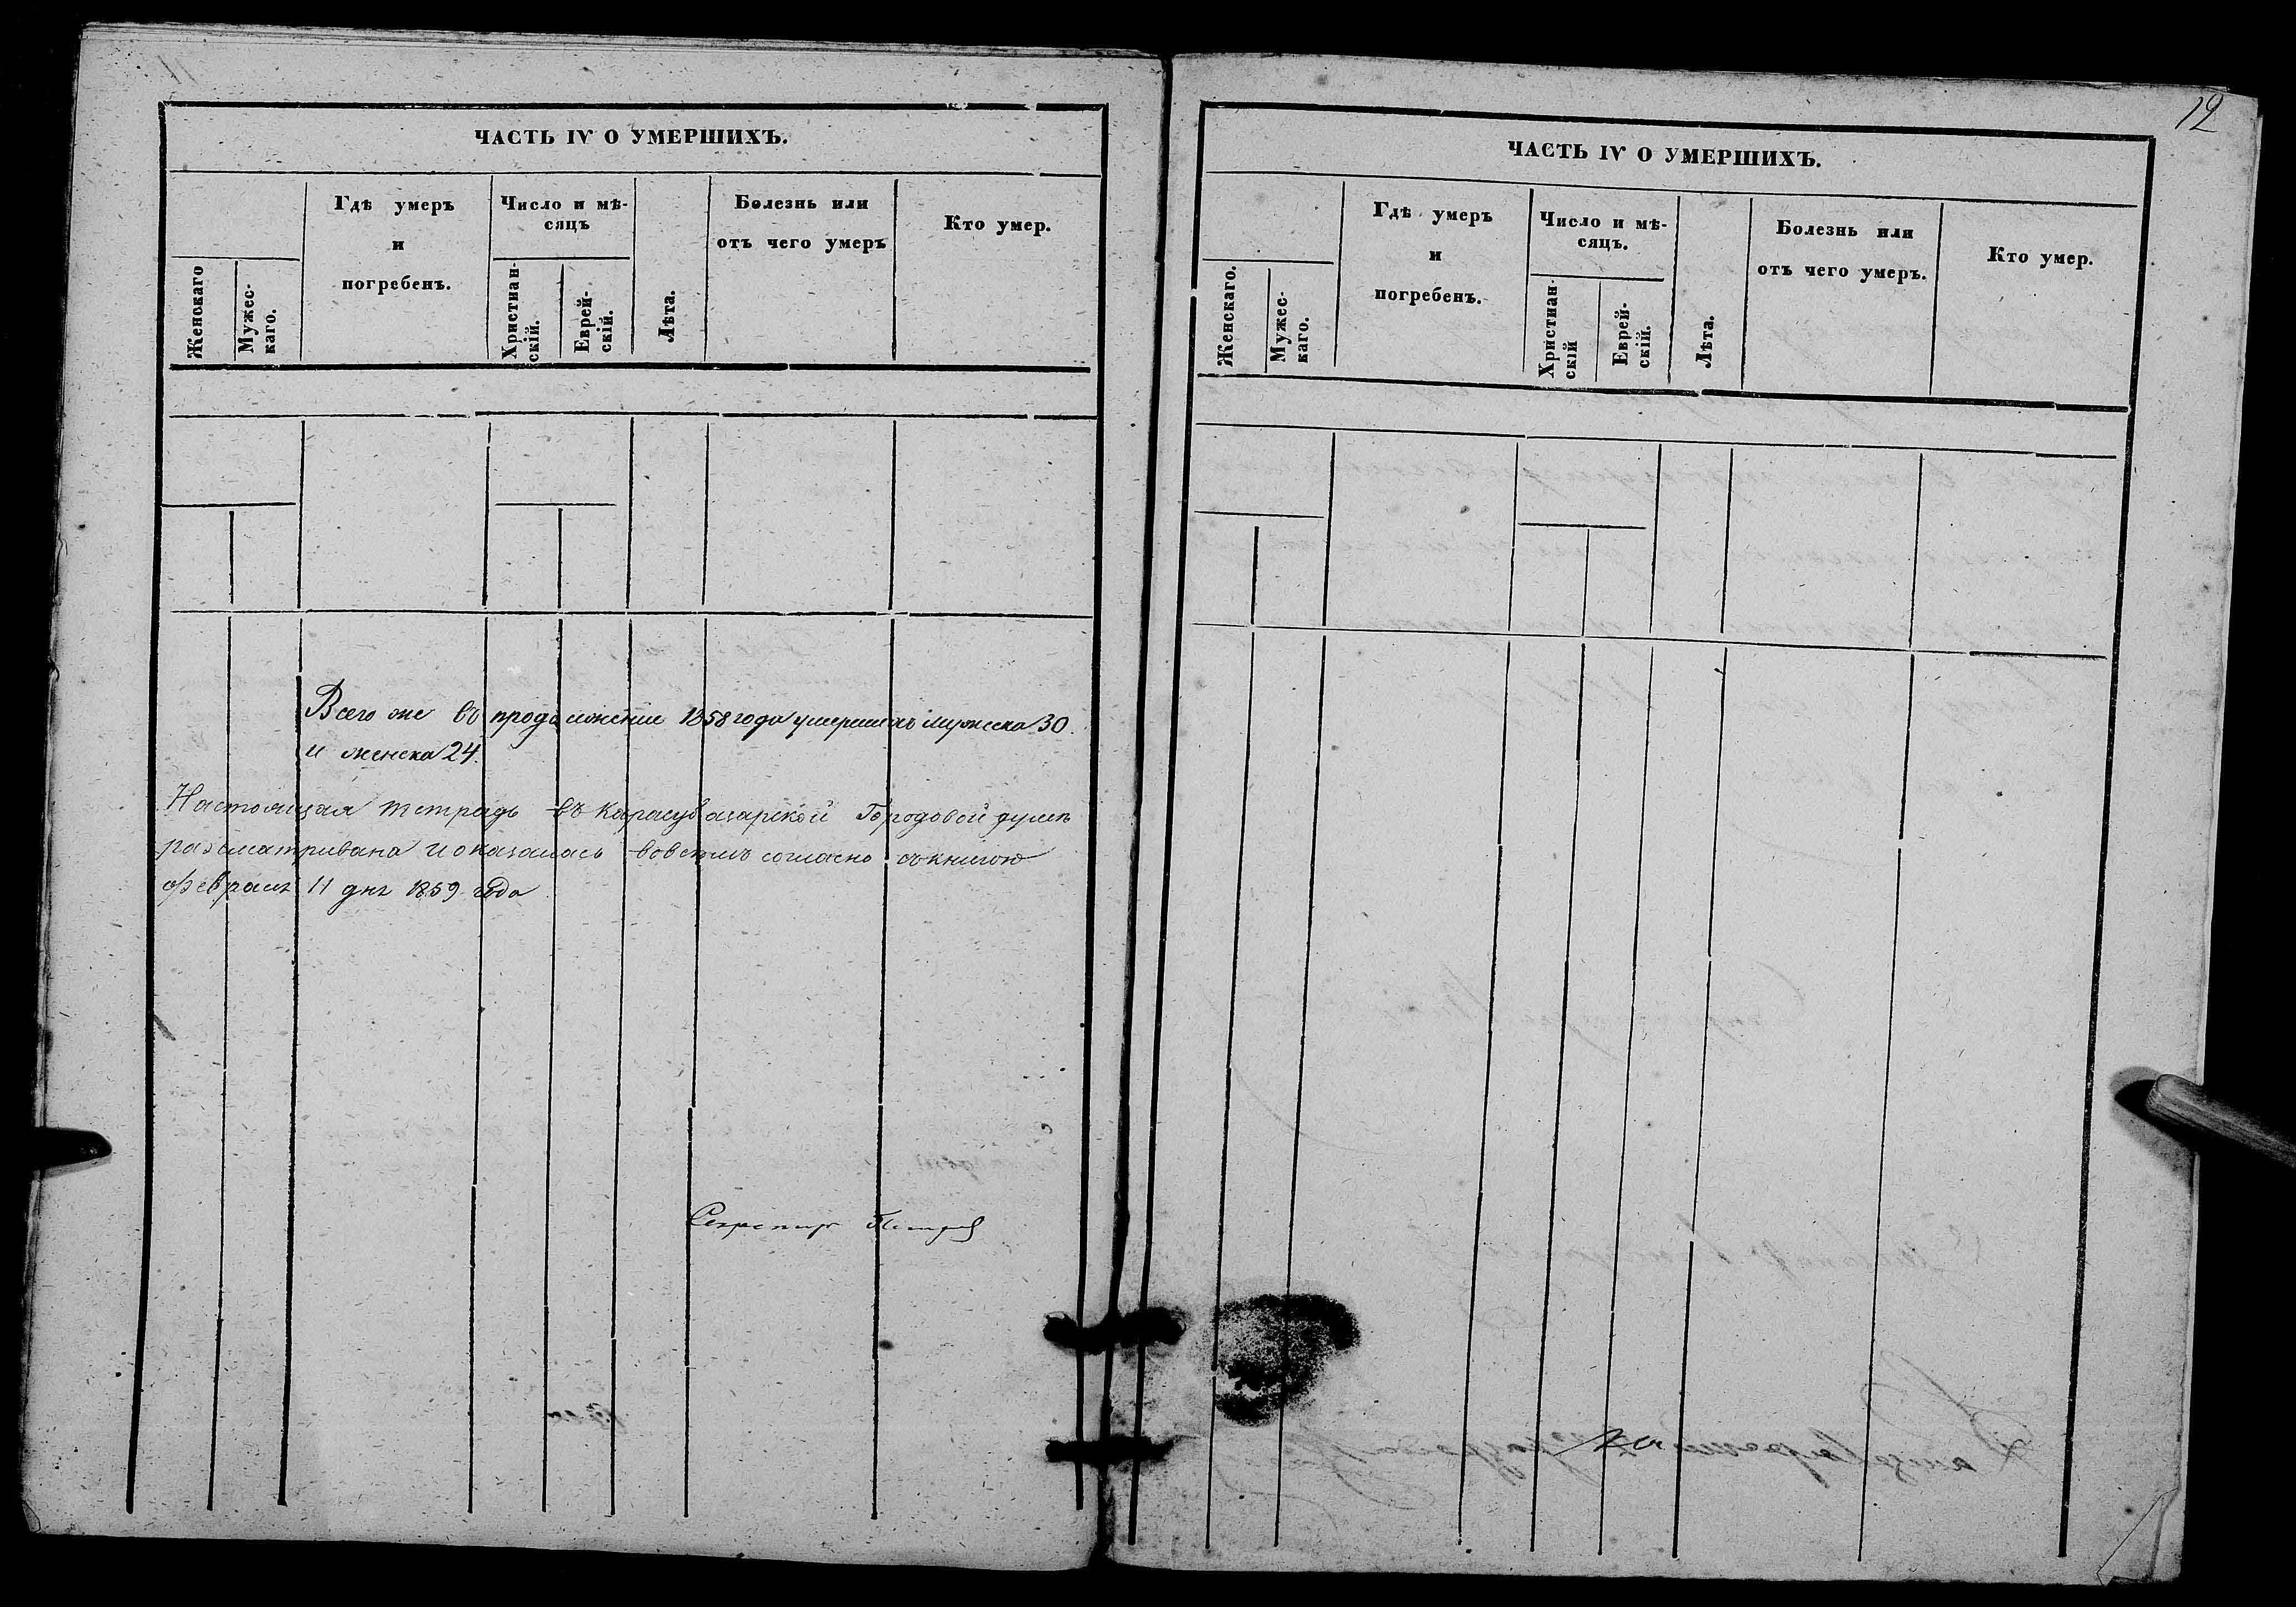 ЧАСТЬ IV О УМЕРШИХЪ.
Женскаго
Мужес-
каго.
Гдѣ умеръ
и
погребенъ.
Число и мѣ-
сяцъ
Христиан-
скій.
Еврей-
скій.
Лѣта.
Болезнь или
отъ чего умеръ
Кто умер.
Всего же въ продолженіи 1858 года умершихъ мужеска 30.
и женска 24.
Настоящая тетрадь въ Карасубазарской Городовой думѣ
разсматривана и оказалась вовсемъ согласно съ книгою
февраля 11 дня 1859 года
Секретарь Петров
12
ЧАСТЬ IV О УМЕРШИХЪ.
Женскаго.
Мужес-
каго.
Гдѣ умеръ
и
погребенъ.
Число и мѣ-
сяцъ.
Христиан-
скій
Еврей-
скій.
Лѣта.
Болезнь или
отъ чего умеръ.
Кто умер.